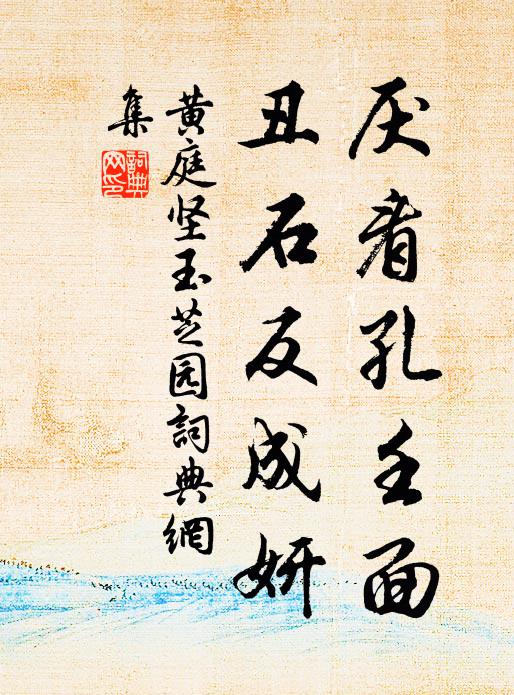 厌看孔壬面
丑石反成妍
黄庭坚玉芝园詞典網
集
詞典
网印